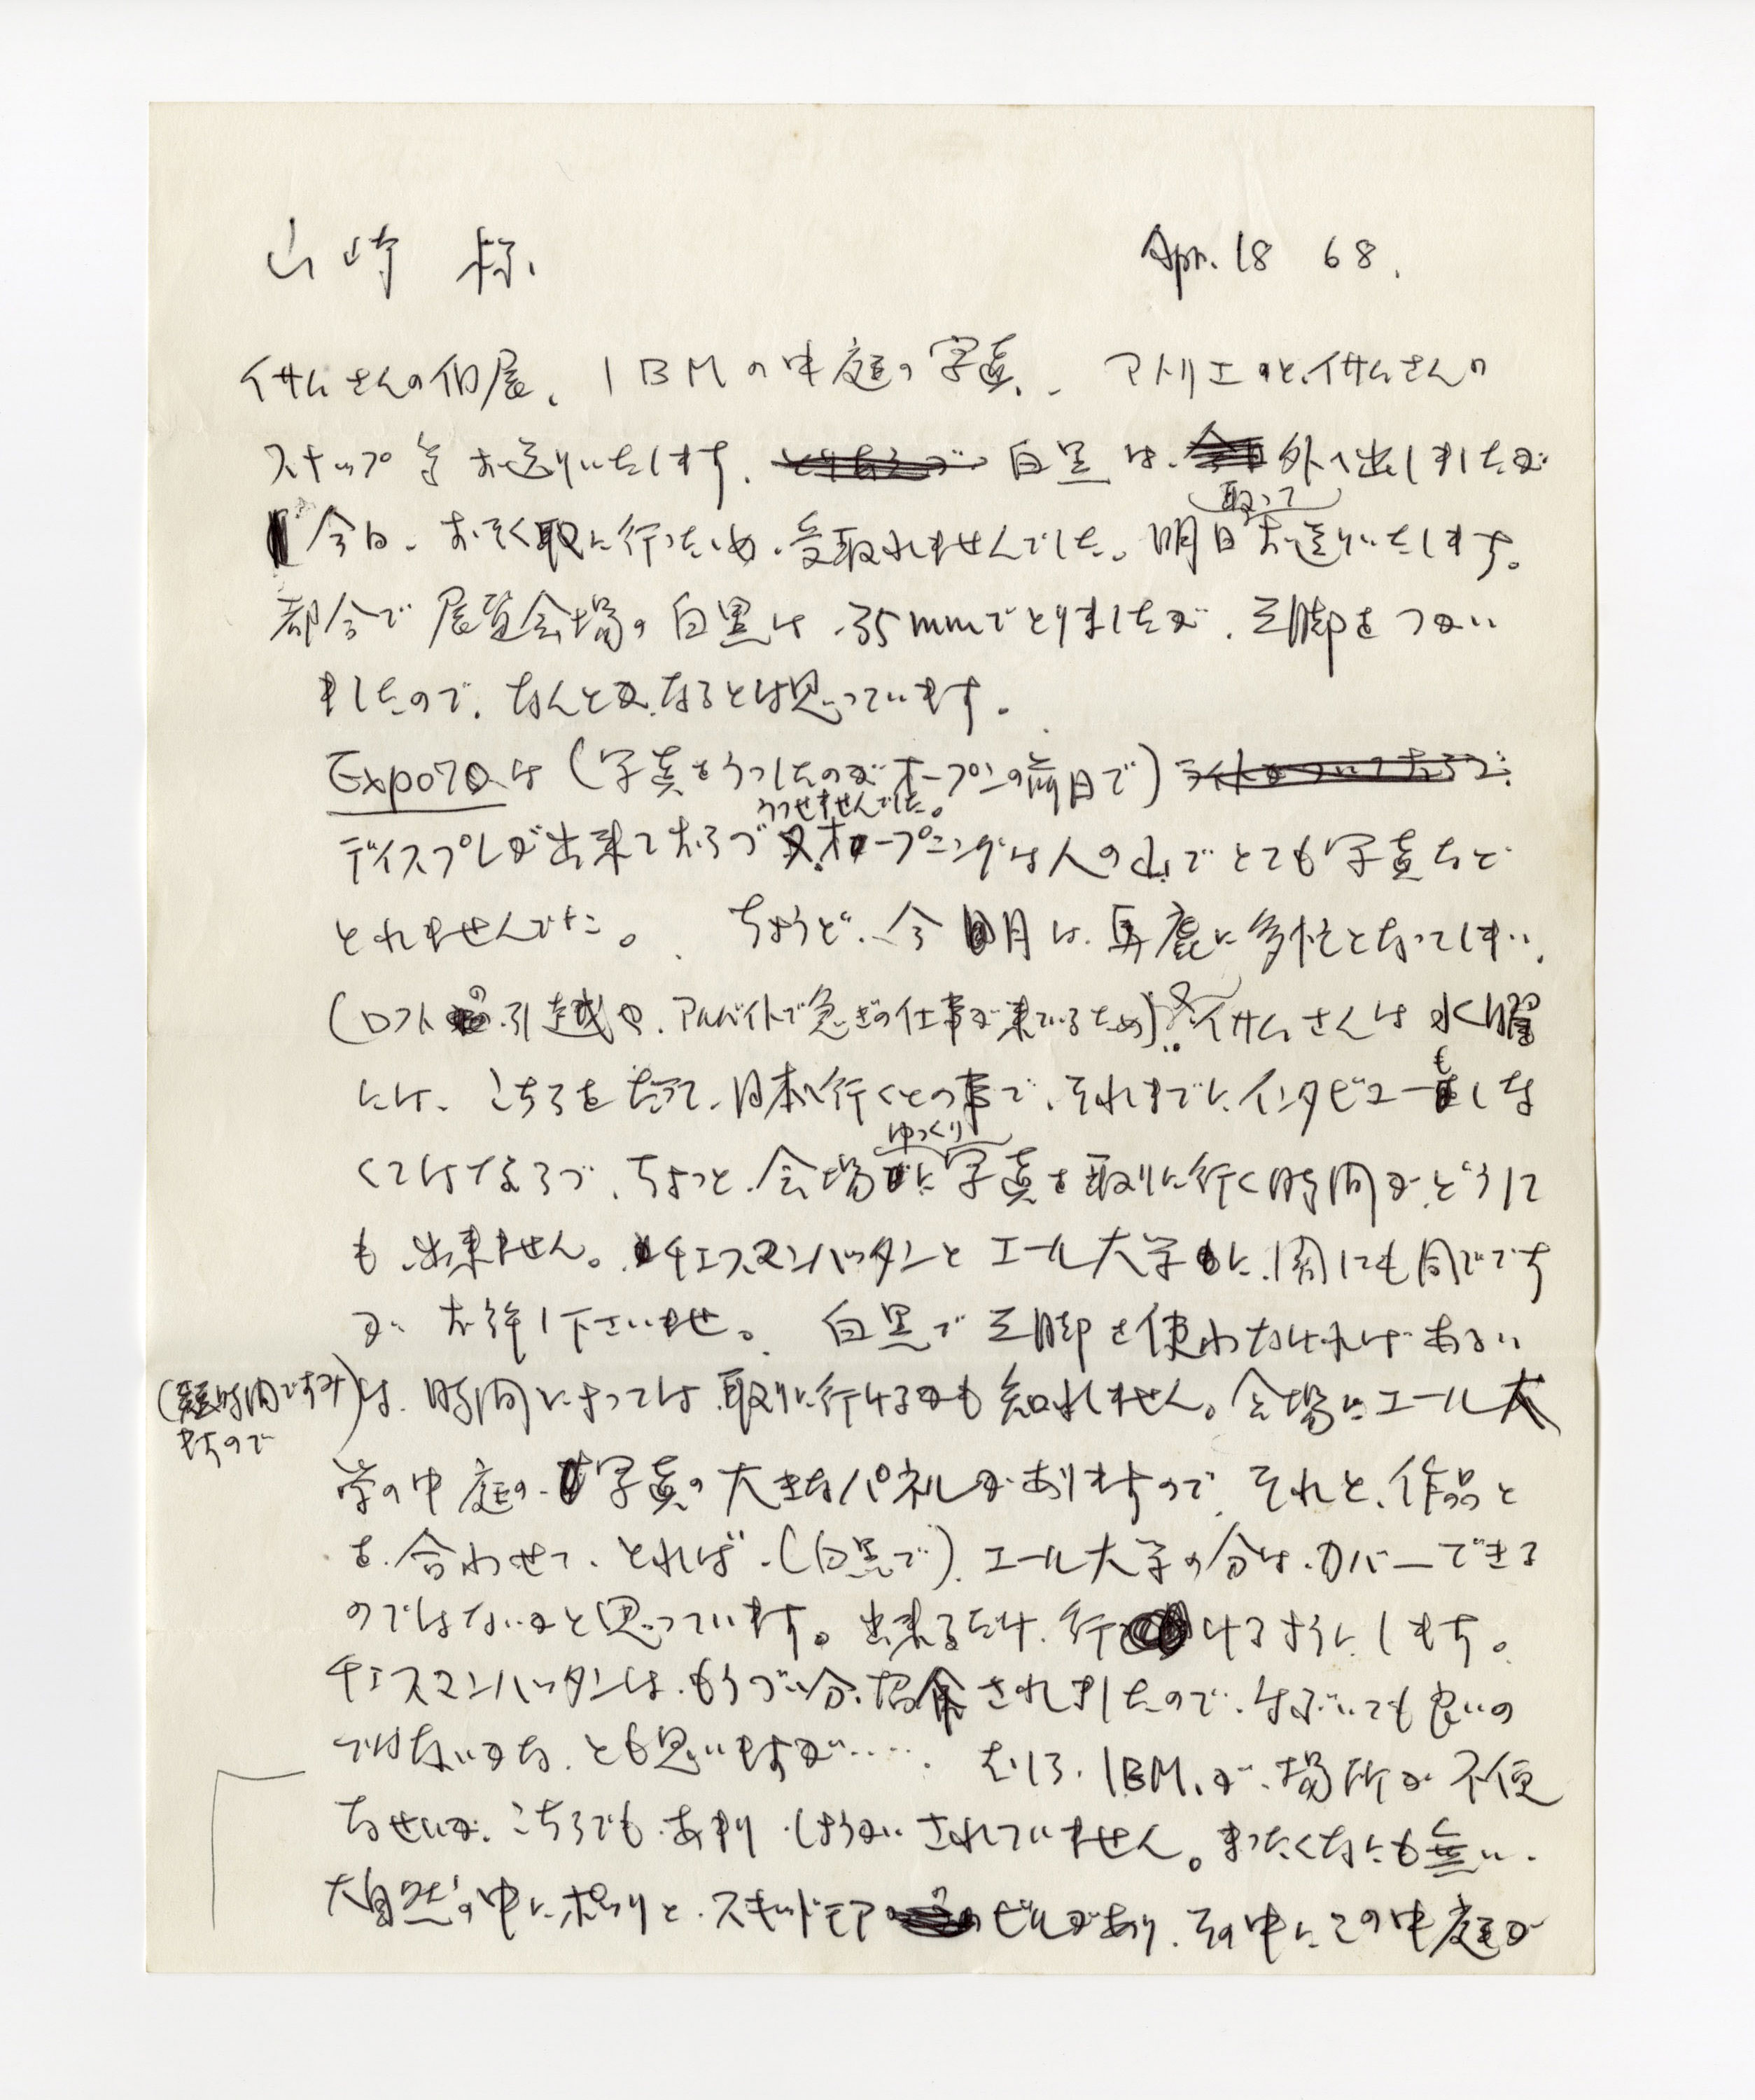 山崎 様、 Apr. 18 68.
イサムさんの個展、IBMの中庭の写真、アトリエのと、イサムさんの
スナップ等お送りいたします。白黒は、外へ出しましたが
取って
今日、おそく取に行ったため、受取れませんでした。明日お送りいたします。
都合で展覧会場の白黒は、35mmでとりましたが、三脚をつかい
ましたので、なんとか、なるとは思っています。
Expo70は(写真をうつしたのがオープンの前日で)
うつせませんでした。
ディスプレが出来ておらづ 又オープニングは人の山でとても写真など
とれませんでした。ちょうど、今月は、馬鹿に多忙となってしまい、
(ロフトの引越や、アルバイトで急ぎの仕事が来ているため) 又イサムさんは水曜
には、こちらを立って、日本へ行くとの事で、それまでに、インタビューもしな
ゆっくり
くてはならづ、ちょっと、会場に写真を取りに行く時間が、どうして
も、出来ません。チェスマンハッタンとエール大学に関しても同じです
が、お許し下さいませ。白黒で三脚を使わなければ、あるい
は、時間によっては、取りに行けるかも知れません。会場にエール大
(短時間ですみ
ますので)
学の中庭の、写真の大きなパネルがありますので、それと、作品と
を、合わせて、とれば、(白黒で)、エール大学の分は、カバーできる
のではないかと思っています。出来るだけ、行けるようにします。
チェスマンハッタンは、もうづい分、紹介されましたので、はぶいても良いの
ではないかな、とも思いますが……。むしろ、IBM、が、場所が不便
なせいか、こちらでも、あまり、しょうかいされていません。まったくなにも無い、
大自然の中にポツリと、スキッドモアのビルがあり、その中にこの中庭が